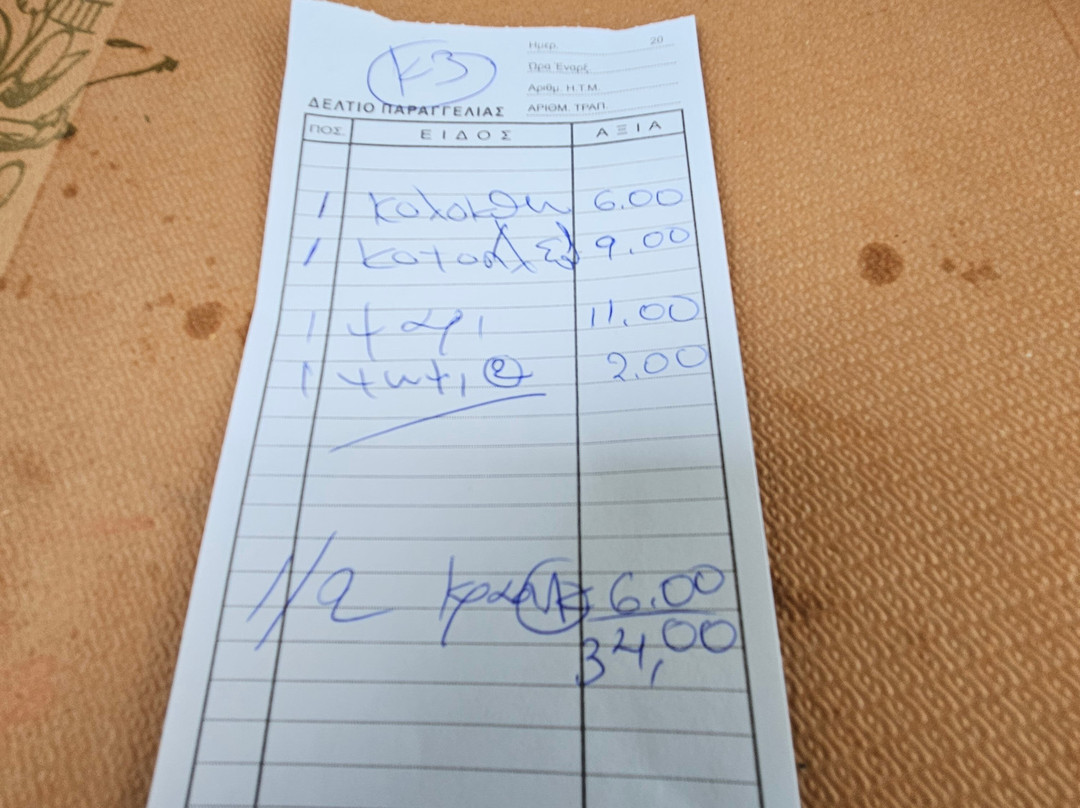 Κ3
Ημερ. 20
Ώρα Έναρξ.
Αριθμ. Η.Τ.Μ.
ΔΕΛΤΙΟ ΠΑΡΑΓΓΕΛΙΑΣ ΑΡΙΘΜ. ΤΡΑΠ.
ΠΟΣ. ΕΙΔΟΣ ΑΞΙΑ
1 6.00
1 9.00
1 ψαρι 11.00
1 ψωμι 2 2.00
1/2 6.00
34,00